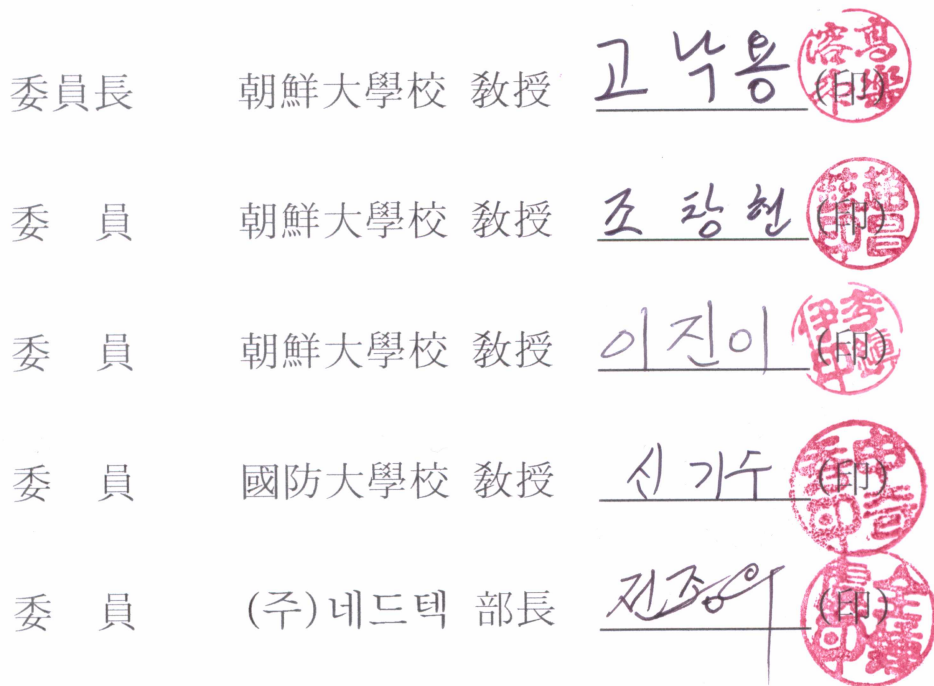 委員長 朝鮮大學校 敎授 고낙용 (印)
委 員 朝鮮大學校 敎授 조창현 (印)
委 員 朝鮮大學校 敎授 이진이 (印)
委 員 國防大學校 敎授 신기수 (印)
委 員 (주)네드텍 部長 (印)